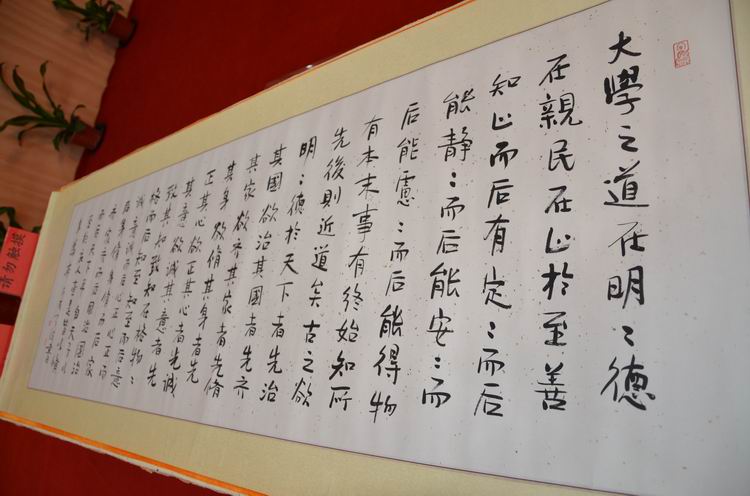 大學之道在明〻德
在親民在止於至善
知止而后有定〻而后
能静〻而后能安〻而
后能慮〻而后能得物
有本末事有终始知所
先後則近道矣古之欲
明〻德於天下者先治
其國欲治其國者先齐
其家欲齐其家者先脩
其身欲脩其身者先
正其心欲正其心者先诚
其意欲诚其意者先
致其知致知在格物〻
格而后知至知至而后意
诚意诚而后心正心正而
后身修身修而后家
而后國治國治
而后天下平自天子以
是皆以修
请勿触摸